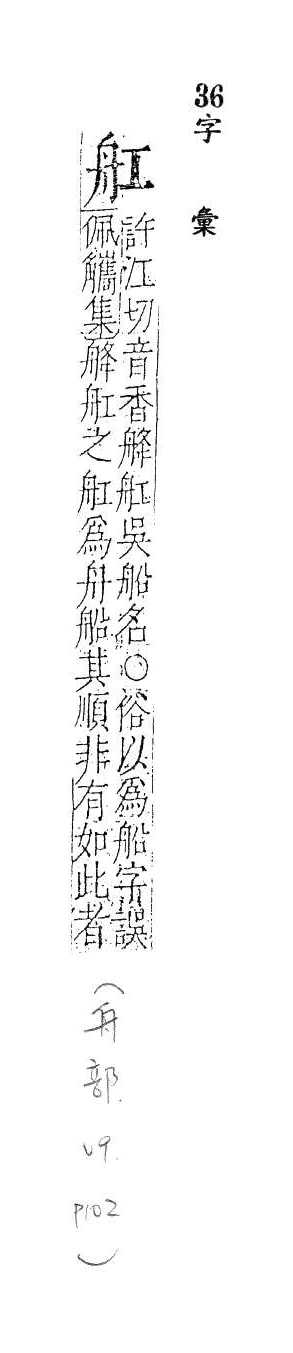 36
字彙
舡
許江切音香舽舡吳船名○俗以爲船字誤
佩觿集舽舡之舡爲舟船其順非有如此者
(舟部 V9. P102)